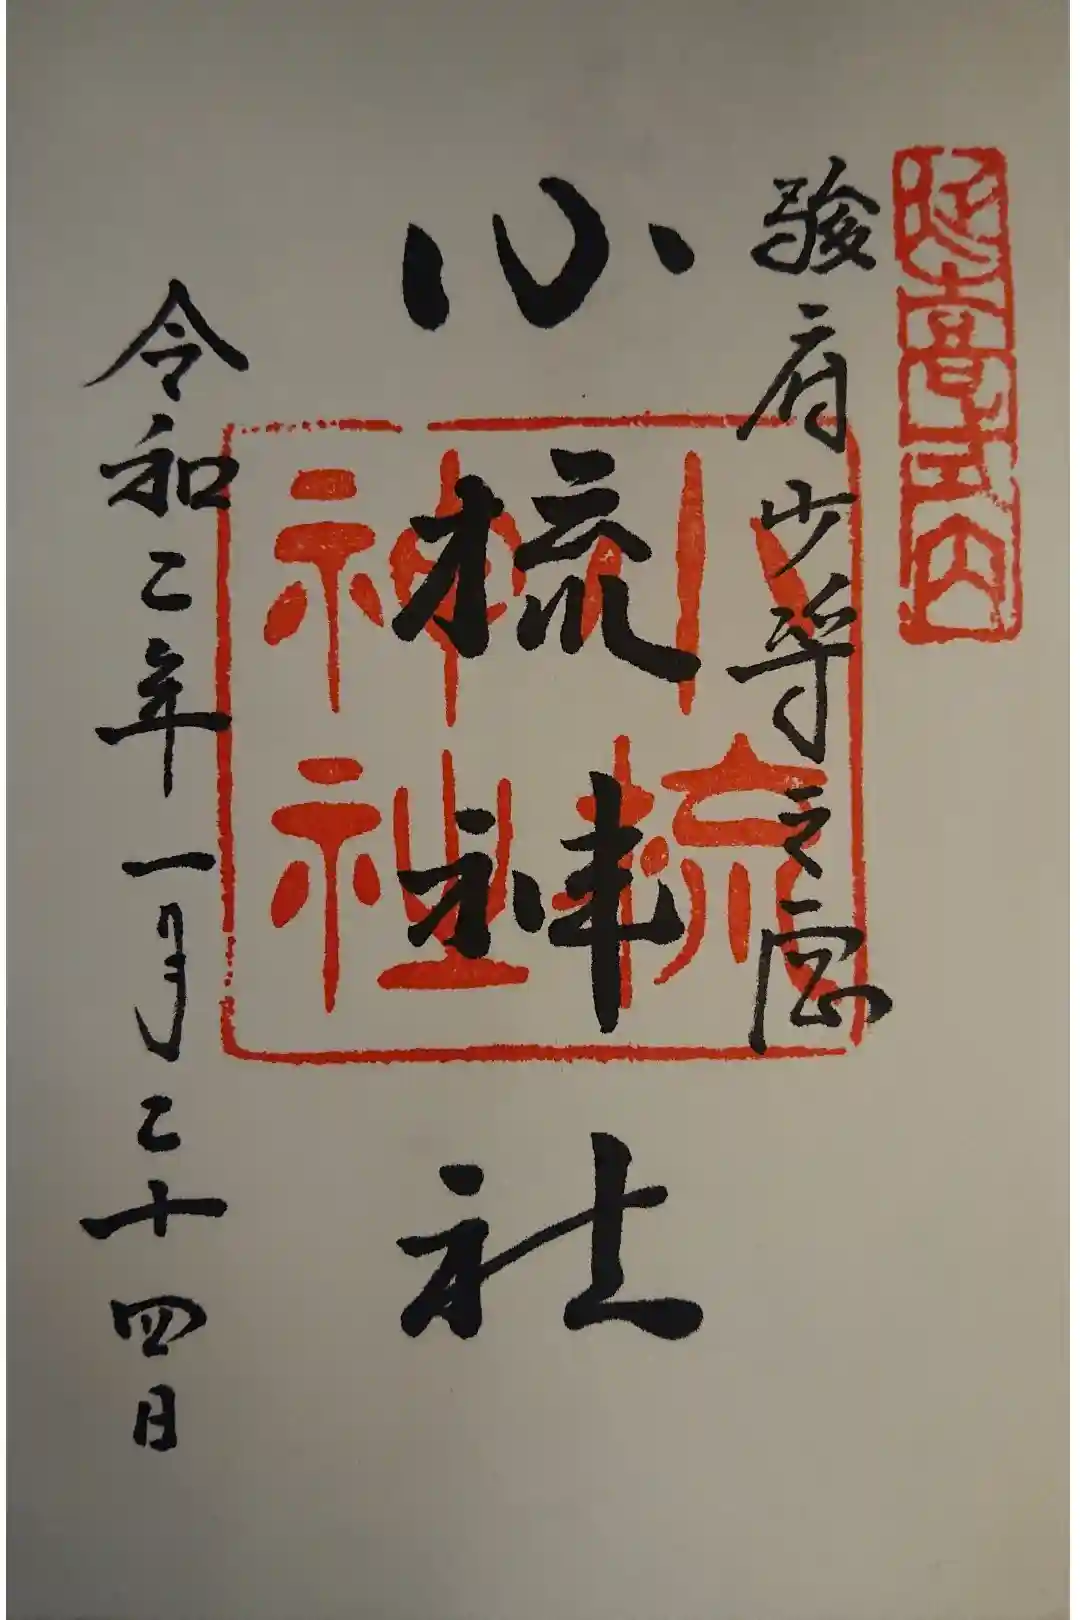 延喜式内
駿府少将之宮
小梳神社
小梳神社
令和二年一月二十四日